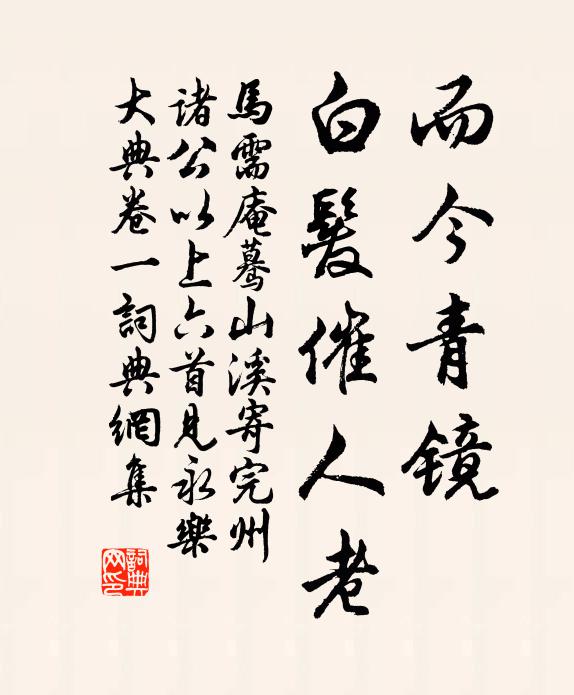 而今青镜
白髮催人老
馬需庵驀山溪寄完州
諸公以上六首見永樂
大典卷一詞典網集
詞典网印